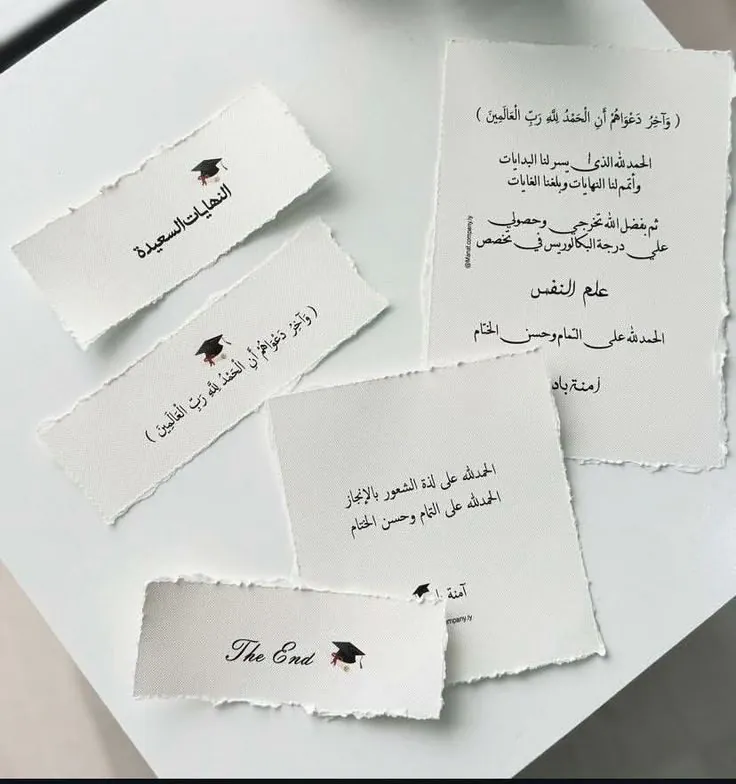 النهايات السعيدة
( وَآخِرُ دَعْوَاهُمْ أَنِ الْحَمْدُ لِلَّهِ رَبِّ الْعَالَمِينَ )
( وَآخِرُ دَعْوَاهُمْ أَنِ الْحَمْدُ لِلَّهِ رَبِّ الْعَالَمِينَ )
الحمدلله الذي يسر لنا البدايات
وأتمم لنا النهايات وبلغنا الغايات
ثم بفضل الله تخرجي وحصولي
علي درجة البكالوريس في تخصص
علم النفس
الحمدلله على التمام وحسن الختام
آمنة
@Manat.company.ly
الحمدلله على لذة الشعور بالإنجاز
الحمدلله على التمام وحسن الختام
آمنة
company.ly
The End